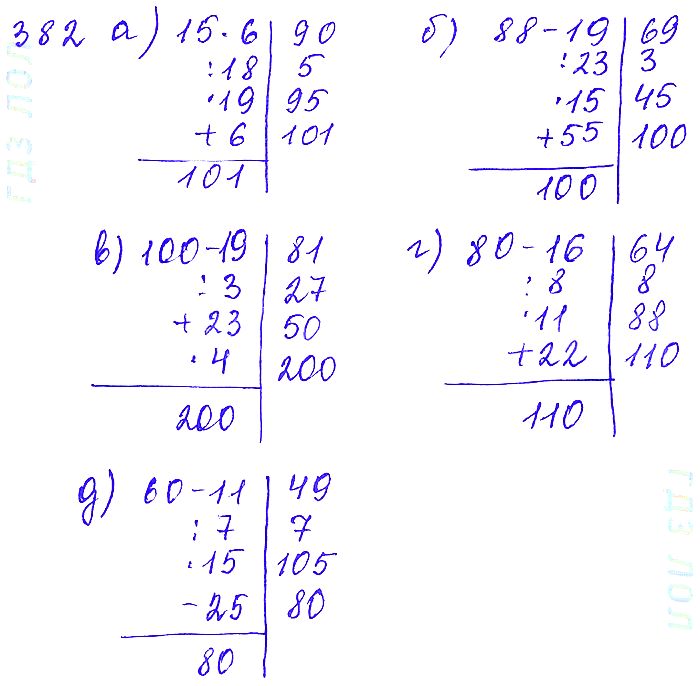 382 а) 15·6 | 90
:18 | 5
·19 | 95
+6 | 101
101
б) 88-19 | 69
:23 | 3
·15 | 45
+55 | 100
100
в) 100-19 | 81
:3 | 27
+23 | 50
·4 | 200
200
г) 80-16 | 64
:8 | 8
·11 | 88
+22 | 110
110
д) 60-11 | 49
:7 | 7
·15 | 105
-25 | 80
80
гдз лол
гдз лол